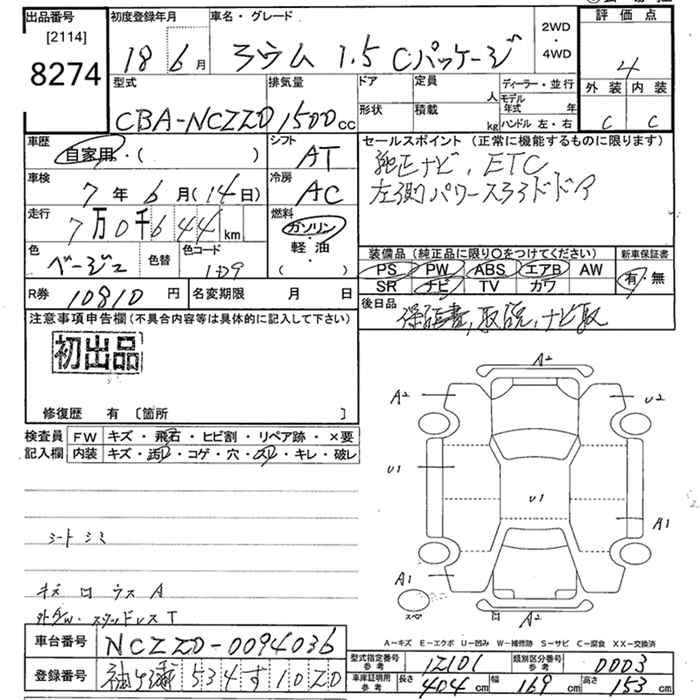 出品番号 初度登録年月 車名・グレード 評価点
[2114]
8274
18年 6月 ラウム 1.5 Cパッケージ 2WD・4WD 4
型式 排気量 ドア 定員 人 ディーラー・並行 外装 内装
CBA-NCZ20 1500cc 形状 積載 kg モデル年式 年 ハンドル 左・右 C C
車歴 自家用・( ) シフト AT
セールスポイント (正常に機能するものに限ります)
純正ナビ, ETC
左側パワースライドドア
車検 7年 6月(14日) 冷房 AC
走行 7万0千644km 燃料 ガソリン・軽・油 ( )
色 ベージュ 色替 色コード
装備品 (純正品に限り○をつけてください) 新車保証書
PS PW ABS エアB AW 有・無
SR ナビ TV カワ
R券 10810円 名変期限 月 日
後日品 保証書, 取説, ナビ取
注意事項申告欄(不具合内容等は具体的に記入して下さい)
初出品
修復歴 有 [箇所 ]
検査員記入欄 FW キズ・飛石・ヒビ割・リペア跡・×要
内装 キズ・汚れ・コゲ・穴・スレ・キレ・破レ
A2
A2 U2
U1 U1
A1
A1
スペア A2
シート シミ
キズ
A
スタッドレス T
A-キズ E-エクボ U-凹み W-補修跡 S-サビ C-腐食 XX-交換済
車台番号 NCZ20-0094036
型式指定番号 参考 12101 類別区分番号 参考 0003
登録番号 534 す 1020
車庫証明用 参考 長さ 404cm 幅 169cm 高さ 153cm